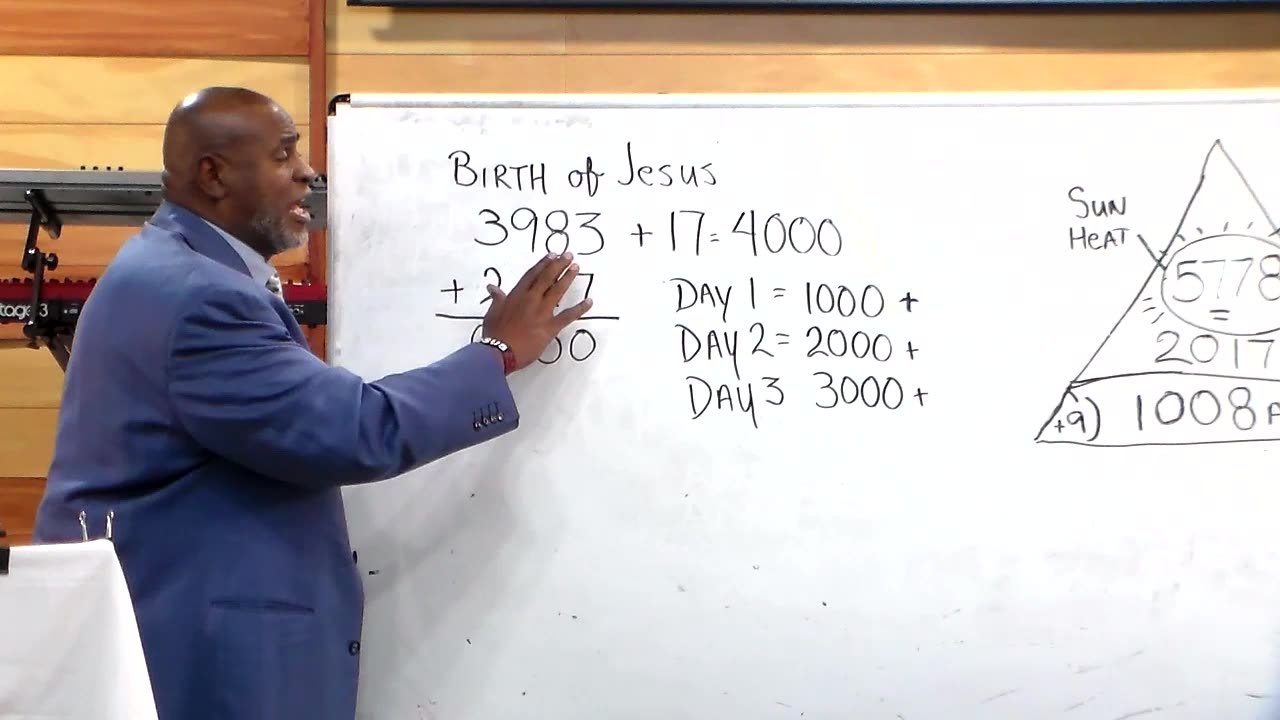 BIRTH of Jesus
3983 + 17 = 4000
+ 2 7
00
DAY 1 = 1000 +
DAY 2 = 2000 +
DAY 3 3000 +
SUN
HEAT
5778
=
2017
+9) 1008
tage 3